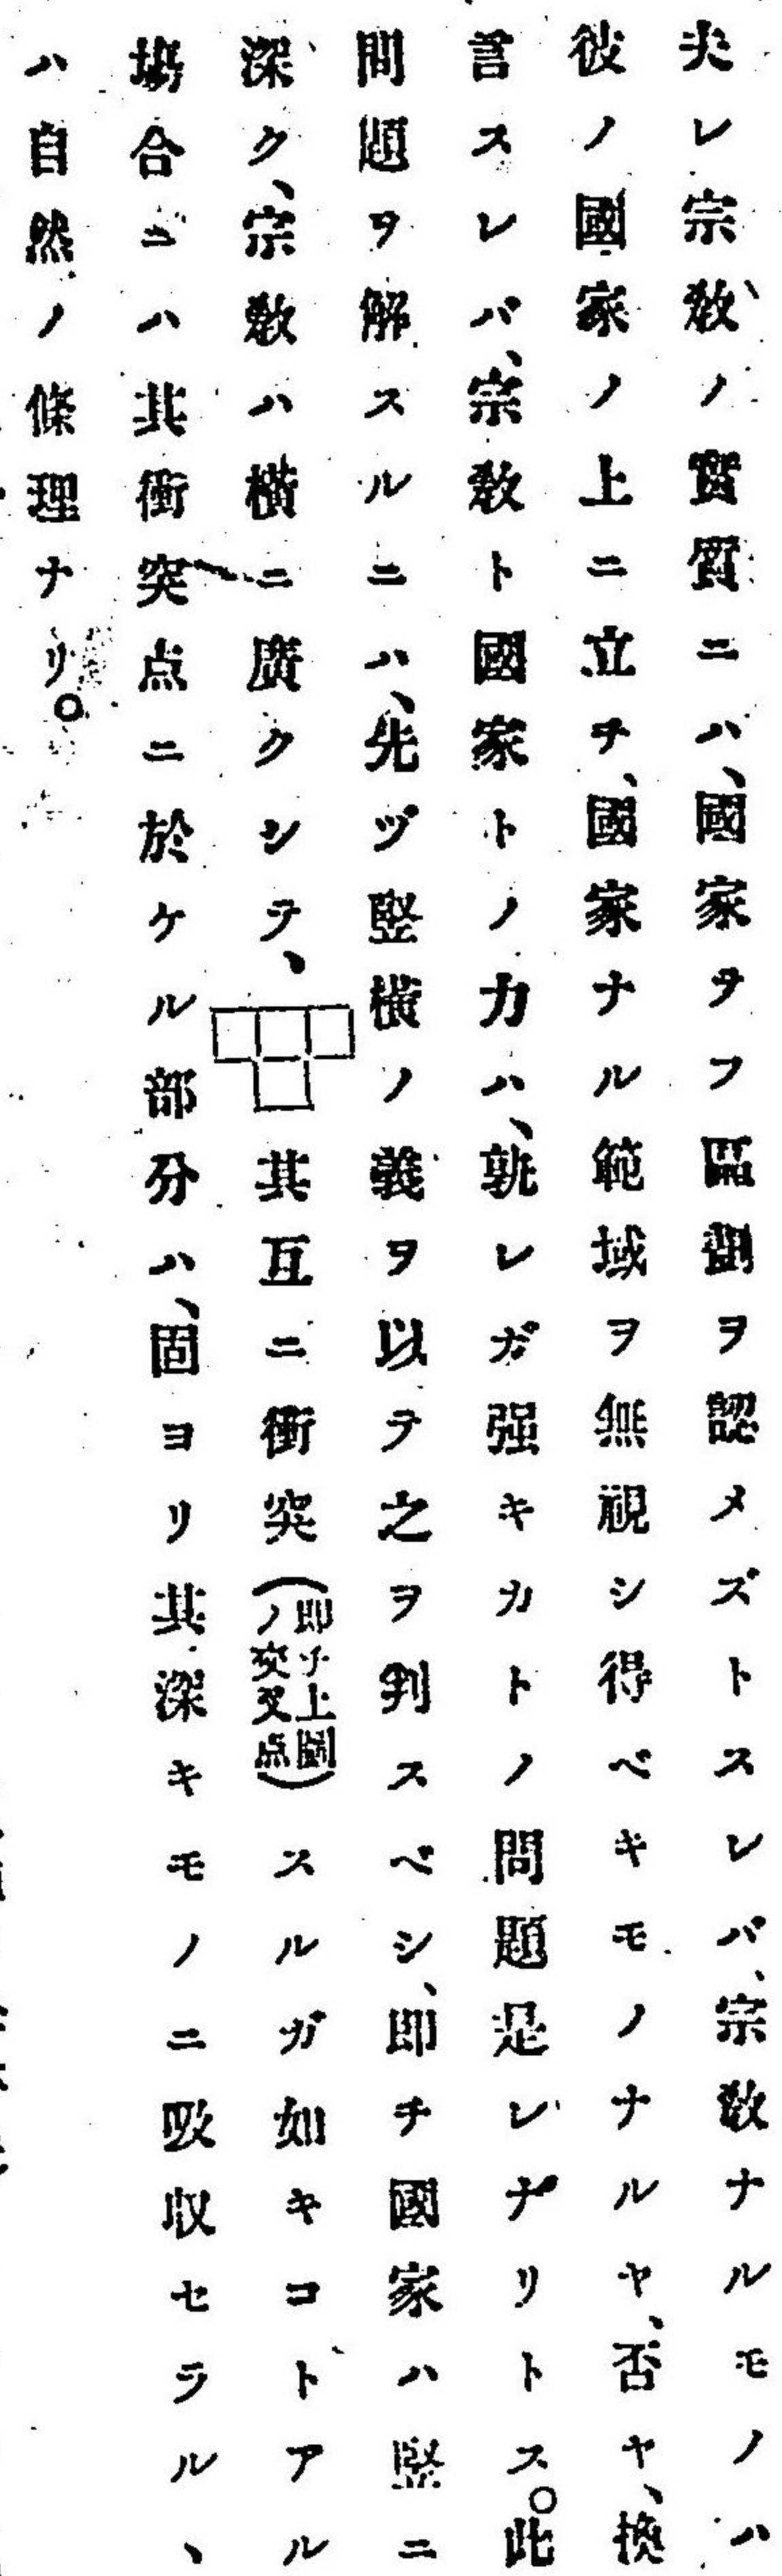 夫レ宗敎ノ實質ニハ、國家テフ區劃ヲ認メズトスレバ、宗敎ナルモノハ
彼ノ國家ノ上ニ立チ、國家ナル範域ヲ無視シ得ベキモノナルヤ、否ヤ、換
言スレバ、宗敎ト國家トノ力ハ、孰レガ强キカトノ問題是レナリトス。此
問題ヲ解スルニハ、先ヅ竪橫ノ義ヲ以テ之ヲ判スベシ、卽チ國家ハ竪ニ
深ク、宗敎ハ橫ニ廣クシテ、其互ニ衝突(卽チ上圖ノ交叉点)スルガ如キコトアル
塲合ニハ其衝突点ニ於ケル部分ハ、固ヨリ其深キモノニ吸收セラルヽ
ハ自然ノ條理ナリ。